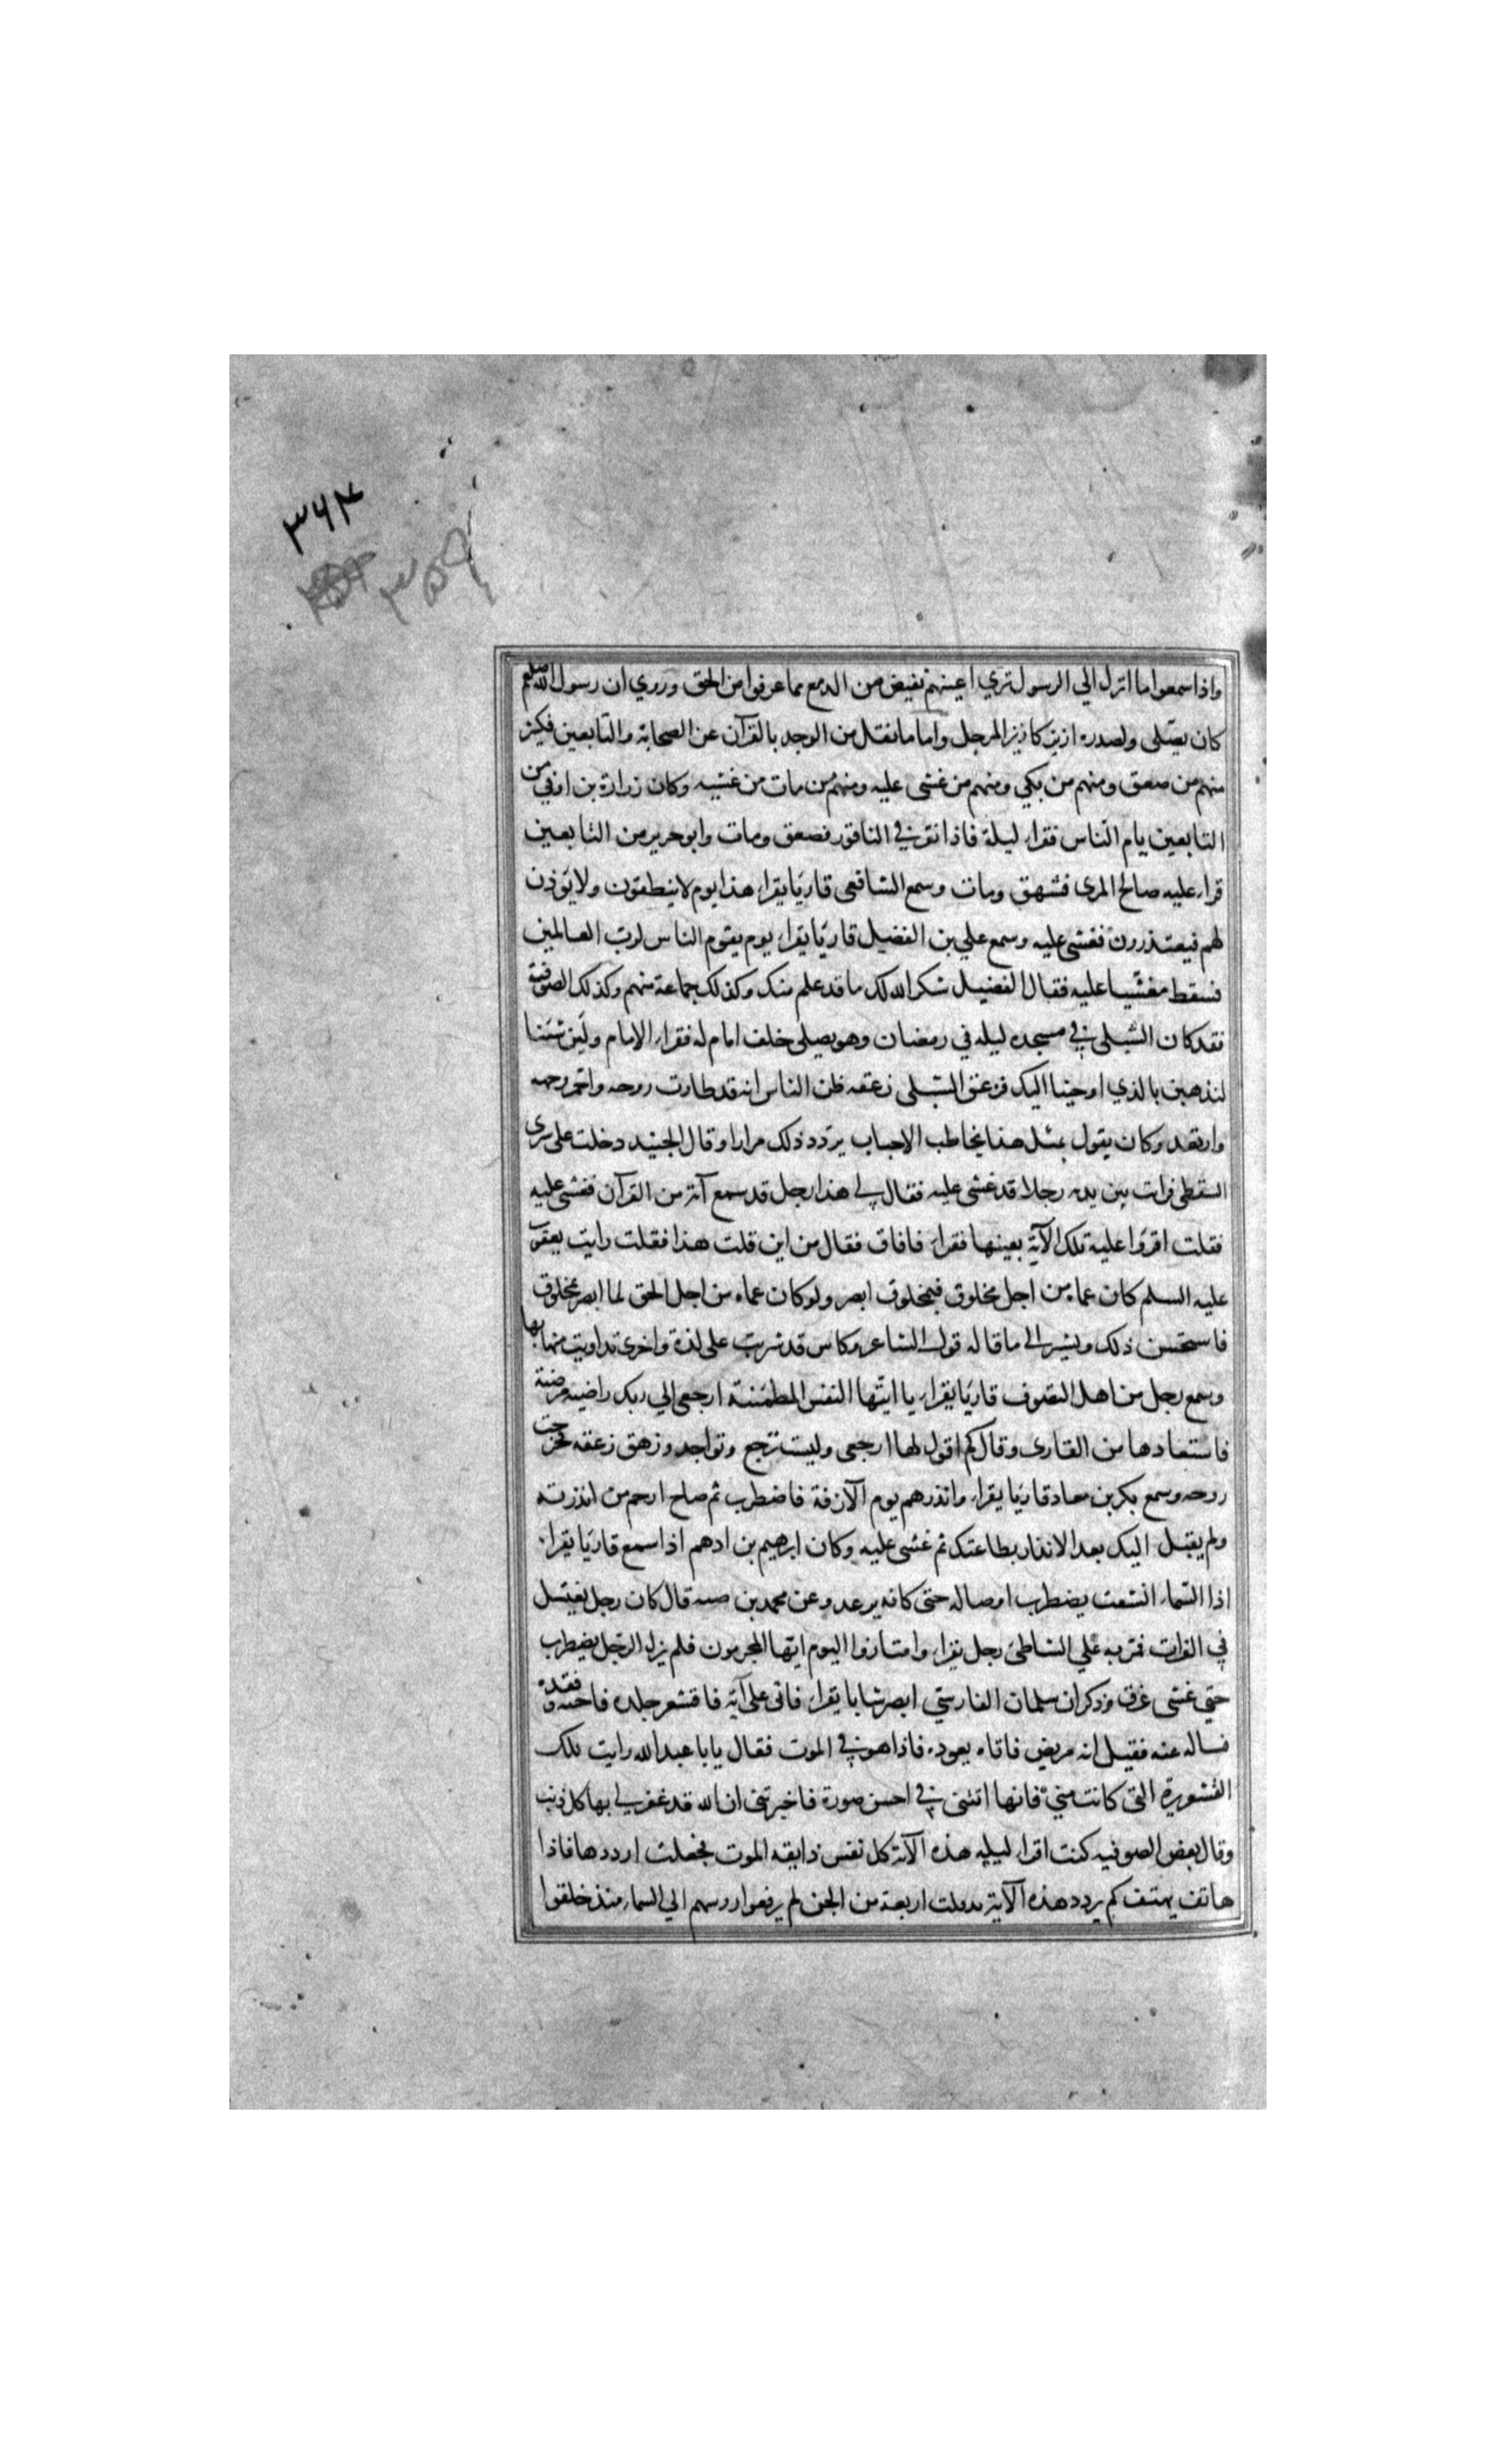 ۳۶۲
۳۵۹
واذا سمعوا ما انزل الي الرسول تري اعينهم تفيض من الدمع مما عرفوا من الحق وروي ان رسول الله صلعم
كان يصلى ولصدره ازيز كازيز المرجل واما ما نقل من الوجد بالقرآن عن الصحابة والتابعين فكثير
منهم من صعق ومنهم من بكي ومنهم من غشى عليه ومنهم من مات من غشيه وكان زرارة بن اوفي من
التابعين يام الناس فقراء ليلة فاذا نقر في الناقور فصعق ومات وابو جرير من التابعين
قراء عليه صالح المرى فشهق ومات وسمع الشافعى قاريا يقراء هذا يوم لا ينطقون ولا يؤذن
لهم فيعتذرون فغشى عليه وسمع علي بن الفضيل قاريا يقراء يوم يقوم الناس لرب العالمين
فسقط مغشيا عليه فقال الفضيل شكر الله لك ما قد علم منك وكذلك جماعة منهم وكذلك الصوفية
فقد كان الشبلى في مسجده ليله في رمضان وهو يصلى خلف امام له فقراء الامام ولئن شئنا
لنذهبن بالذي اوحينا اليك فزعق الشبلى زعقه ظن الناس انه قد طارت روحه واحمر وجهه
وارتعد وكان يقول بمثل هذا يخاطب الاحباب يردد ذلك مرارا وقال الجنيد دخلت على سرى
السقطى فرات بين يديه رجلا قد غشى عليه فقال لي هذا رجل قد سمع آية من القرآن فغشى عليه
فقلت اقروا عليه تلك الآية بعينها فقراء فافاق فقال من اين قلت هذا فقلت رايت يعقوب
عليه السلم كان عماه من اجل مخلوق فبمخلوق ابصر ولو كان عماه من اجل الحق لما ابصر بمخلوق
فاستحسن ذلك ويشير الى ما قاله قول الشاعر وكاس قد شربت على لذة واخرى تداويت منها بها
وسمع رجل من اهل التصوف قاريا يقراء يا ايتها النفس المطمئنة ارجعي الي ربك راضية مرضية
فاستعادها من القارى وقال كم اقول لها ارجعى وليست ترجع وتواجد وزهق زعقه فخرجت
روحه وسمع بكر بن معاد قاريا يقراء وانذرهم يوم الآزفة فاضطرب ثم صاح ارحم من انذرته
ولم يقبل اليك بعد الانذار بطاعتك ثم غشى عليه وكان ابرهيم بن ادهم اذا سمع قاريا يقراء
اذا السماء انشقت يضطرب اوصاله حتى كانه يرعد وعن محمد بن صبيه قال كان رجل يغتسل
في الفرات فمر به علي الشاطئ رجل يقراء وامتازوا اليوم ايها المجرمون فلم يزل الرجل يضطرب
حتي غشى غرق وذكر ان سلمان الفارسي ابصر شابا يقراء فاتى على آية فاقشعر جلده فاحبه وفقده
فساله عنه فقيل انه مريض فاتاه يعوده فاذا هو في الموت فقال يابا عبد الله رايت تلك
القشعريرة التى كانت منى فانها اتتنى في احسن صورة فاخبرتنى ان الله قد غفر لي بها كل ذنب
وقال بعض الصوفيه كنت اقراء ليلة هذه الآية كل نفس ذايقه الموت فجعلت ارددها فاذا
هاتف يهتف كم يردد هذه الآية اربعة من الجن لم يرفعوا روسهم الي السماء منذ خلقوا